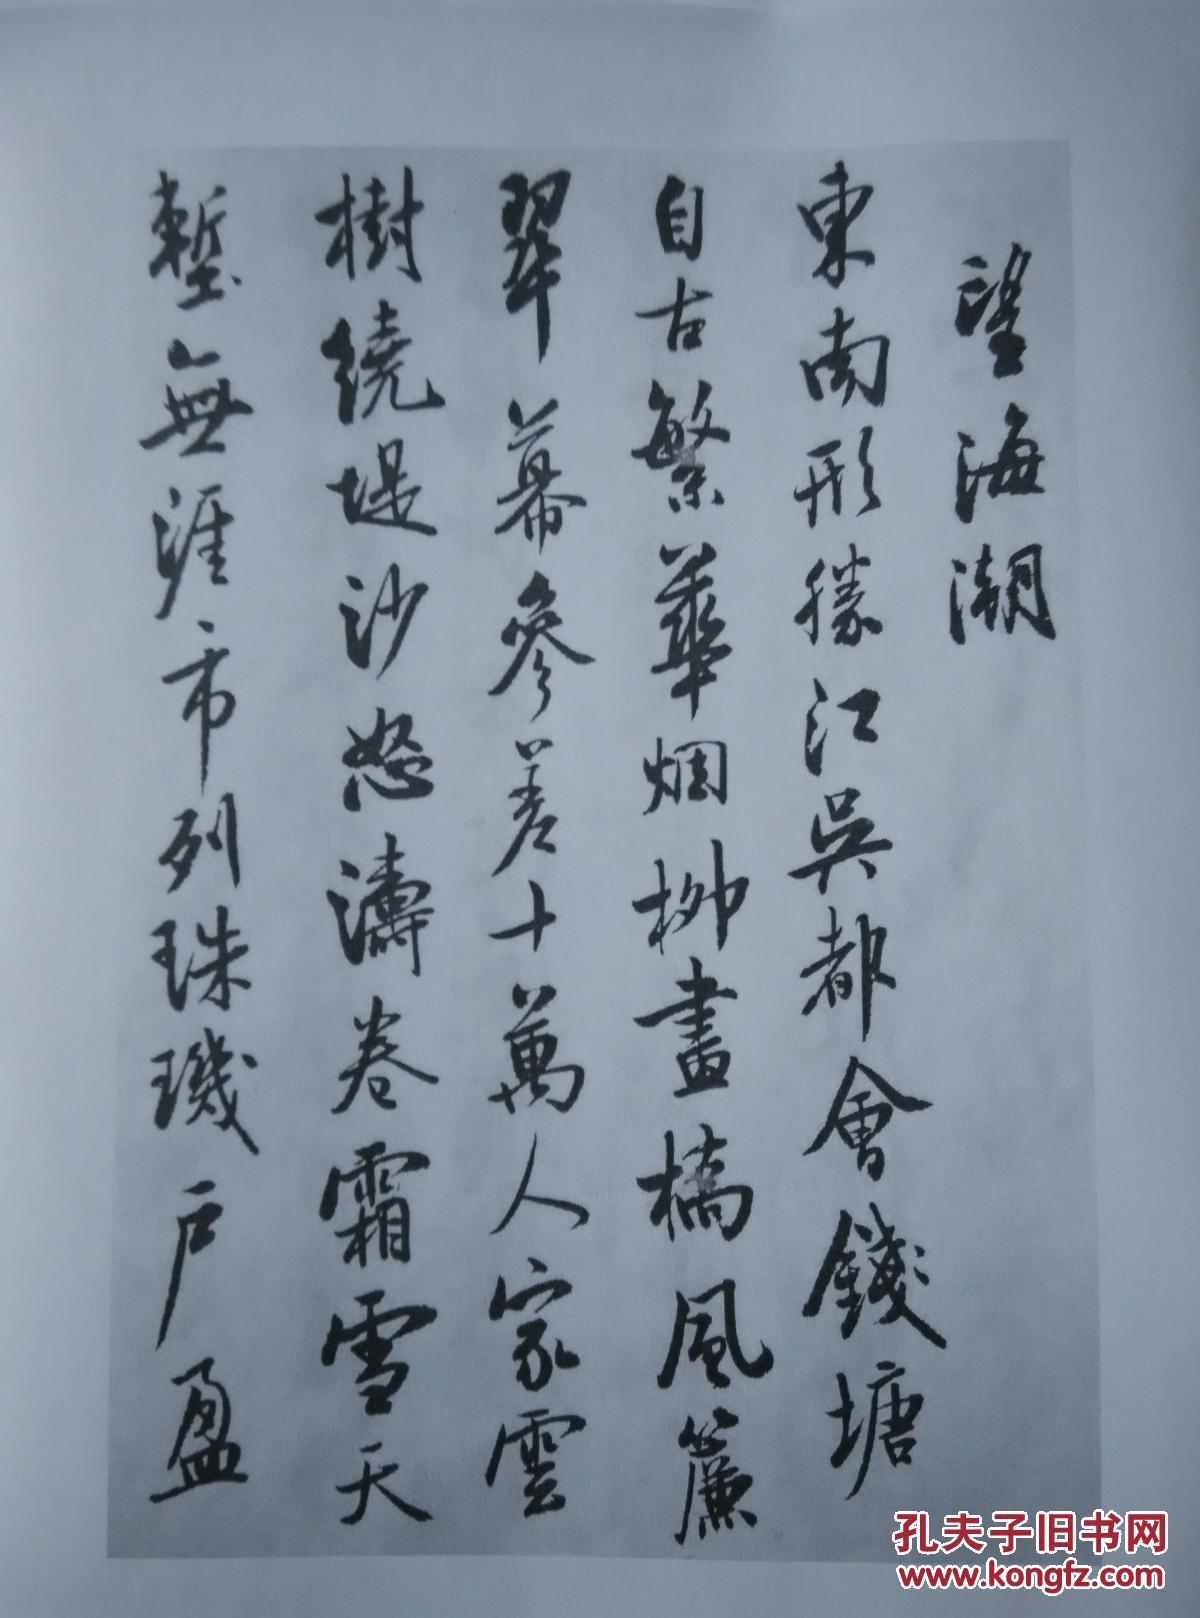 望海潮
東南形勝江吳都會錢塘
自古繁華烟柳畫橋風簾
翠幕參差十萬人家雲
樹繞堤沙怒濤卷霜雪天
塹無涯市列珠璣户盈
孔夫子旧书网
www.kongfz.com